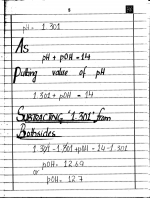 8
pH = 1.301
As
pH + pOH = 14
Putting value of pH
1.301 + pOH = 14
SUBTRACTING "1.301" from
Bothsides
1.301 - 1.301 + pOH = 14 - 1.301
pOH = 12.69
or
pOH = 12.7